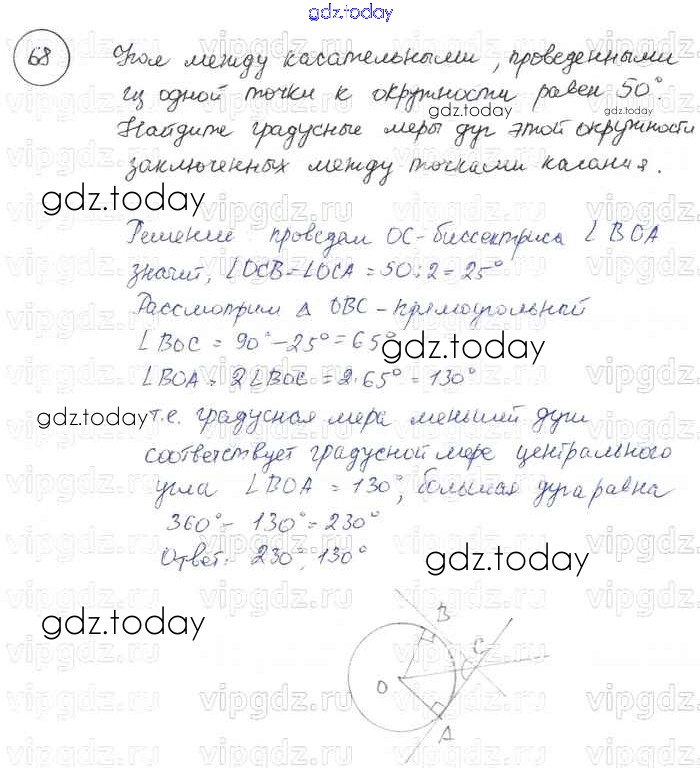 gdz.today
68
Угол между касательными, проведенными
из одной точки к окружности равен 50°.
gdz.today
Найдите градусные меры дуг этой окружности
заключенных между точками касания.
gdz.today
Решение проведем OC-биссектриса ∠BOA
значит, ∠OCB=∠OCA=50:2=25°
Рассмотрим Δ OBC-прямоугольный
∠BOC = 90°-25°=65°
gdz.today
∠BOA = 2∠BOC = 2·65° = 130°
gdz.today
т.е. градусная мера меньшей дуги
соответствует градусной мере центрального
угла ∠BOA = 130°, большая дуга равна
360°- 130°=230°
Ответ: 230°, 130°
gdz.today
gdz.today
B
C
O
A
vipgdz.ru